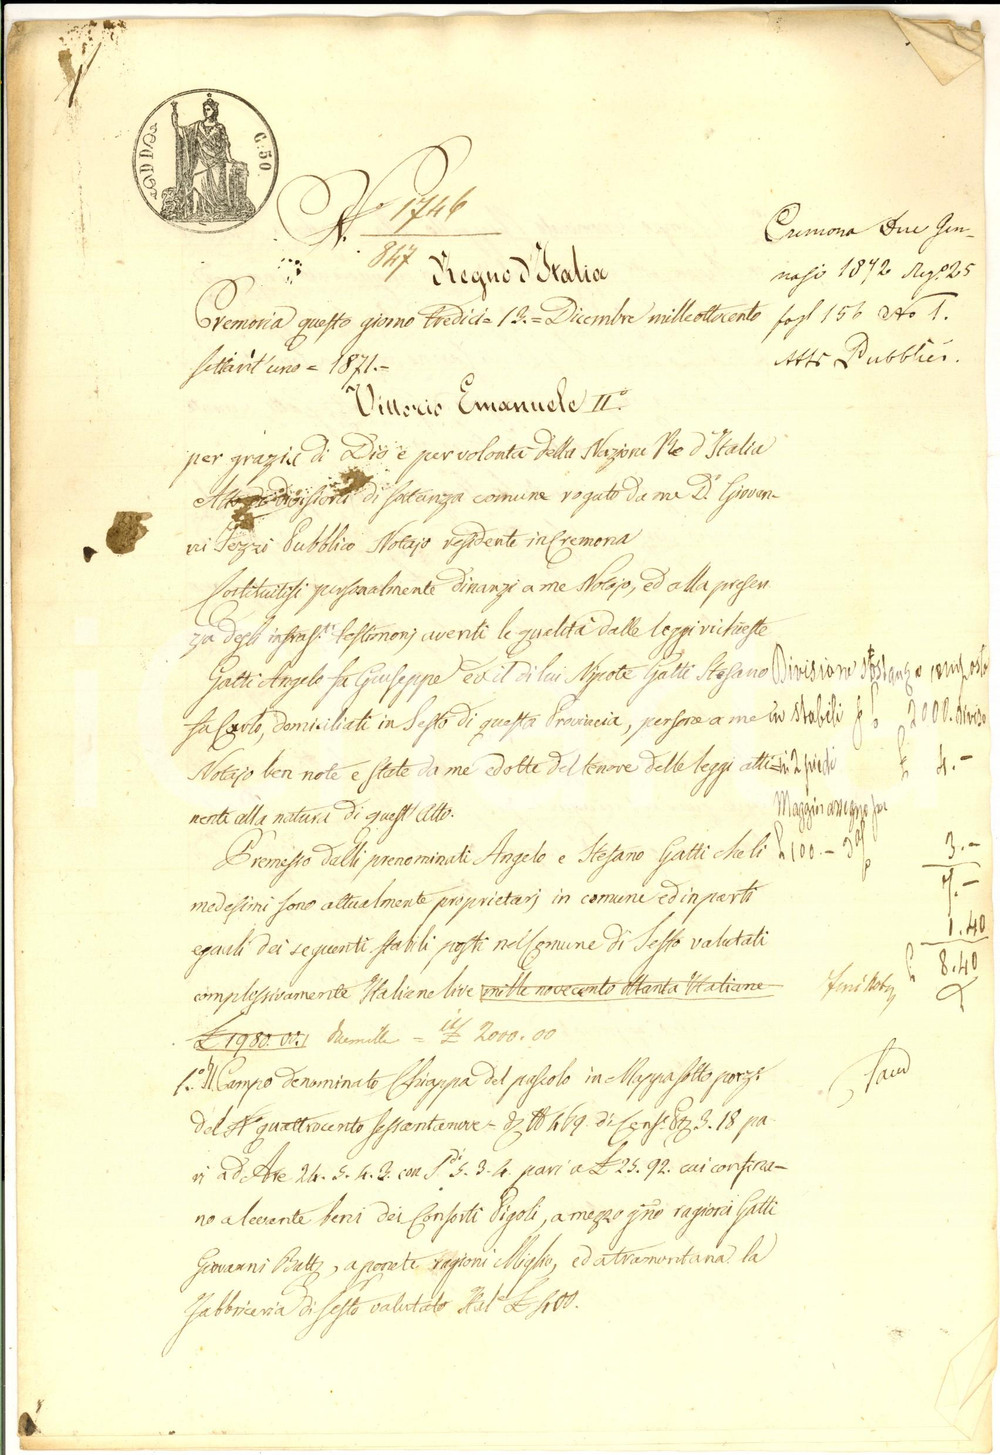 C. 50
N. 1746
847
Regno d'Italia
Cremona questo giorno tredici = 13. = Dicembre milleottocento
settant'uno = 1871. -
Vittorio Emanuele II°.
per grazia di Dio e per volontà della Nazione Re d'Italia
Atto di divisione di sostanza comune rogato da me Dr. Giovan-
ni Pezzi Pubblico Notajo residente in Cremona
Costituitisi personalmente dinanzi a me Notajo, ed alla presen
za degli infrascti. testimonj aventi le qualità dalle leggi richieste
Gatti Angelo fu Giuseppe ed il di lui Nipote Gatti Stefano
fu Carlo, domiciliati in Sesto di questa Provincia, persone a me
Notajo ben note e state da me edotte del tenore delle leggi atti-
nenti alla natura di quest'Atto.
Premesso dalli prenominati Angelo e Stefano Gatti che li
medesimi sono attualmente proprietarj in comune ed in parti
eguali dei seguenti stabili posti nel Comune di Sesto valutati
complessivamente Italiane lire mille novecento ottanta Italiane
£ 1980.00. duemille = it£ 2000.00
1.° Il Campo denominato Chiappa del pascolo in Mappa sotto porz:
del N° quattrocento sessantanove - 469 di Cens. Ptz 3. 18 pa-
ri ad Are 24. 5. 4. 3. con Sdi 5. 3. 4. pari a £ 25. 92. cui confina-
no a levante beni dei Consorti Pigoli, a mezzo gno ragioni Gatti
Giovanni Batta, a ponente ragioni Miglio, ed a tramontana la
Fabbriceria di Sesto valutato Ital £ 400.
Cremona Due Gen-
najo 1872 Reg° 25
fogl 156 No 1.
Atti Pubblici.
Divisione sostanza composta
in stabili £ 2000. divisa
in 2 piedi £ 4. -
Maggior assegno per
£ 100. - 3. -
7. -
1.40
£ 8.40